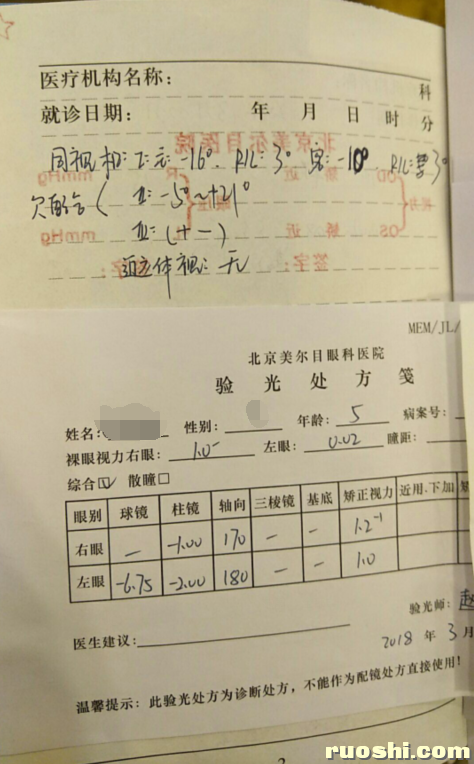 医疗机构名称：
科
就诊日期： 年 月 日 时 分
同视机：I：主：-16° R/L：3°
欠配合 II：-5°~+21°
III：(+-)
近立体视：无
MEM/JL/
北京美尔目眼科医院
验光处方笺
姓名： 性别： 年龄：5 病案号：
裸眼视力右眼：1.0- 左眼：0.02 瞳距：
综合☑ 散瞳□
眼别 球镜 柱镜 轴向 三棱镜 基底 矫正视力 近用、下加
右眼 — -1.00 170 — — 1.2-1
左眼 -6.75 -2.00 180 — — 1.0
验光师：赵
医生建议：
2018 年 3 月
温馨提示：此验光处方为诊断处方，不能作为配镜处方直接使用！
2
ruoshi.com